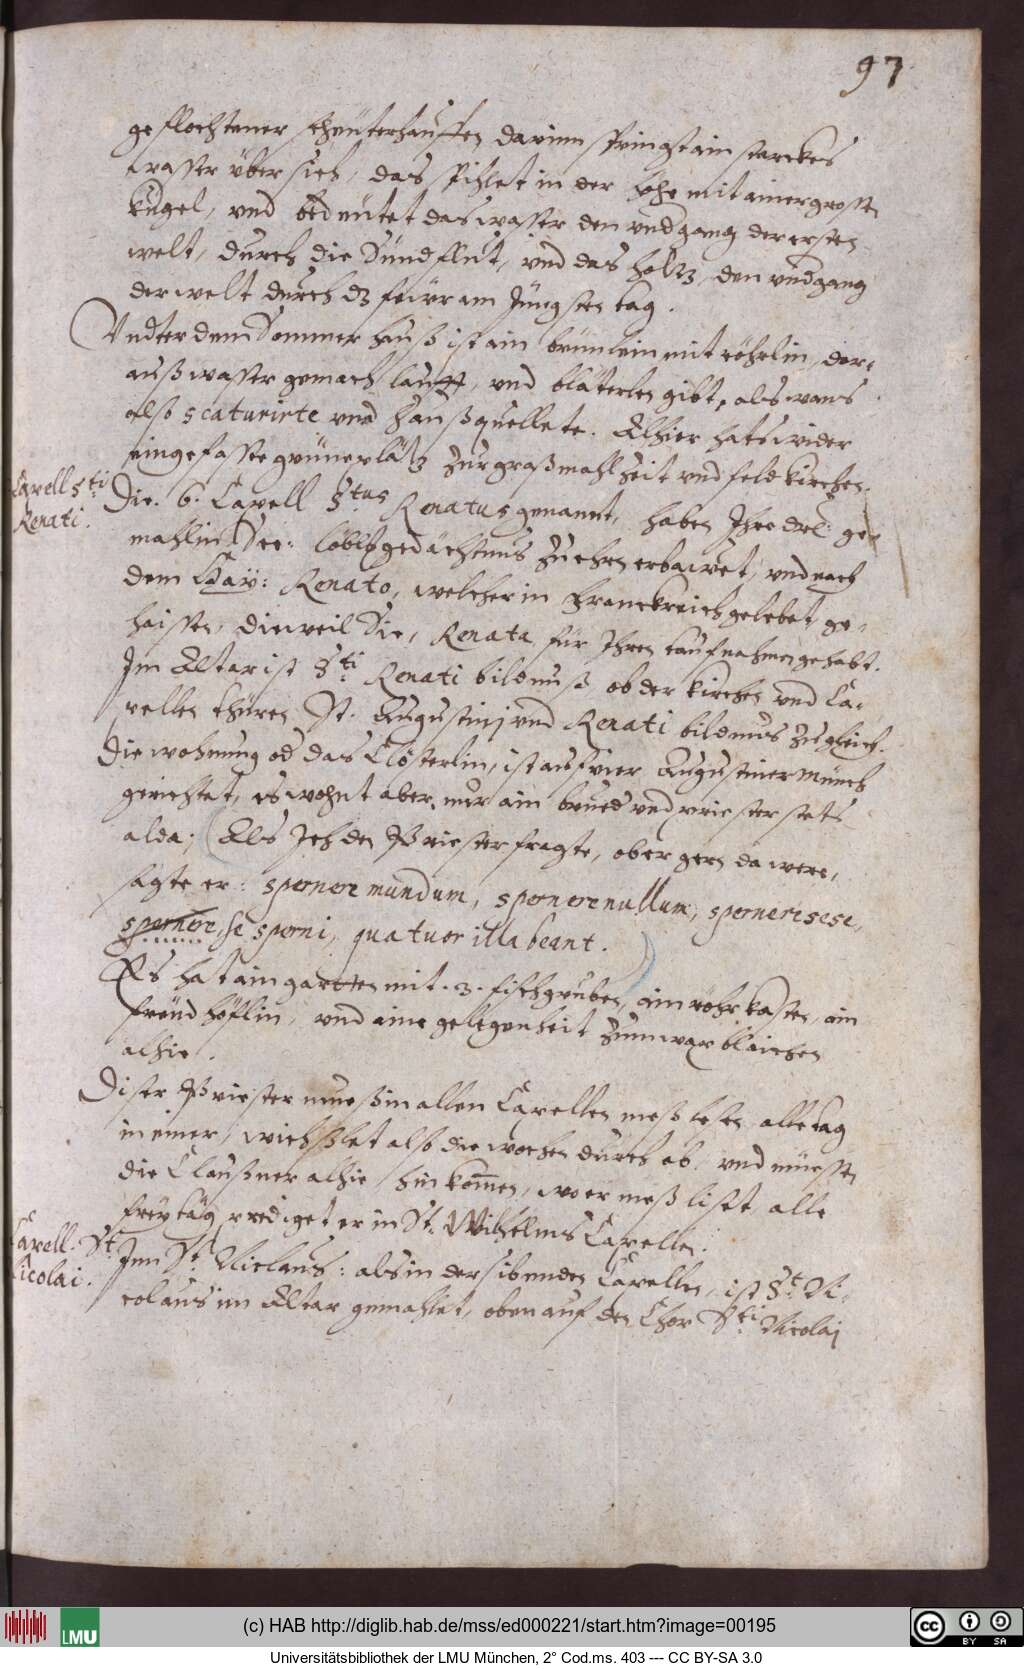 97
geflochtener scheüterhauffen darinn springt ain starckes
wasser über sich, das spihlet in der höhe mit ainer grossen
kugel, vnd bedeütet das wasser den vndgang der ersten
welt, durch die Sündflut, vnd das holtz, den vndgang
der welt durch dz feüwr am Jüngsten tag.
Vndter dem Sommerhauß ist ain brünnlein mit röhrlin, dar-
auß wasser gemach laufft, vnd blätterlen gibt, als wans
also scaturirte vnd herauß quellete. Alhier hats wider
eingefasste grüne plätz zur graßmahlzeit vnd feld kirchen.
Capell Sti
Renati.
Die. 6. Capell Stus Renatus genannt, haben Ihre drl: ge-
mahlin See: löbl: gedächtnus zu ehren erbawet, vnd nach
dem Hay: Renato, welcher in Franckreich gelebet, ge-
haissen, dieweil Sie, Renata für Ihren taufnahmen gehabt.
Im Altar ist Sti Renati bildnuß, ob der kirchen vnd Ca-
pellen thüren St. Augustinj vnd Renati bildnus zugleich.
Die wohnung od das Clösterlin, ist auf vier Augustiner Münch
gerichtet, es wohnt aber nur ain brued vnd priester stets
alda; (Als Ich den Priester fragte, ob er gern da were,
sagte er: spernere mundum, spernere nullum, spernere sese,
spernere, se sperni, quatuor illa beant.)
Es hat ain garten mit. 3. fischgruben, ain röhrkasten, ain
freüd höflin, vnd aine gelegenheit zum wax blaichen
alhie.
Diser Priester mueß in allen Capellen meß lesen alle tag
in einer, wechßlet also die wochen durch ab, vnd müessen
die Claußner alhie, hin kom̄en, wo er meß lißt, alle
freytäg prediget er in St. Wilhelms Capellen.
Capell. St.
Nicolai.
Inn St. Niclaus: als in der sibenden Capellen, ist St. Ni-
colaus im Altar gemahlet, oben auf den Chor Sti Nicolaj
(c) HAB http://diglib.hab.de/mss/ed000221/start.htm?image=00195
LMU
cc BY SA
Universitätsbibliothek der LMU München, 2° Cod.ms. 403 --- CC BY-SA 3.0